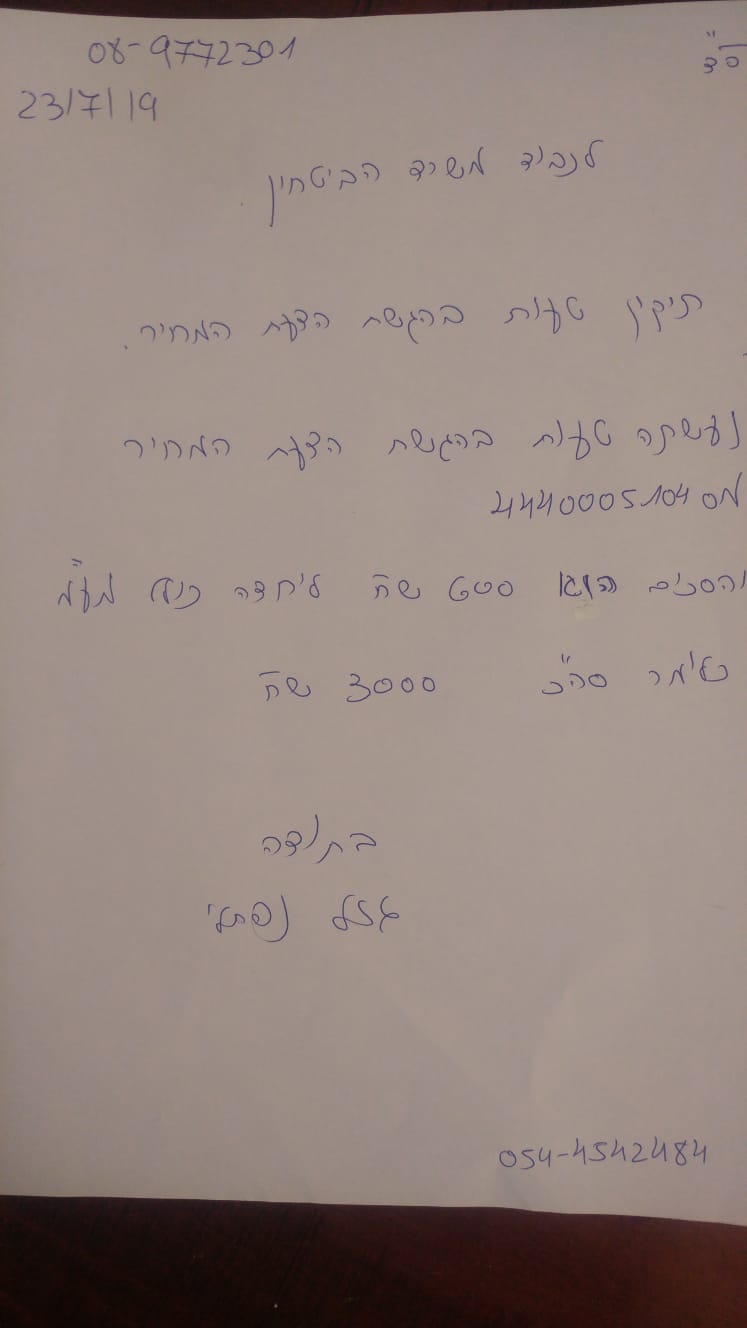 בס"ד
08-9772301
23/7/19
לכבוד משרד הביטחון.
תיקון טעות בהגשת הצעת המחיר.
נעשתה טעות בהגשת הצעת המחיר
מס 4440005104
והסכום הוא 600 שח ליחדה כולל מע"מ
כלומר סה"כ 3000 שח
בתודה
נפתלי
054-4542484